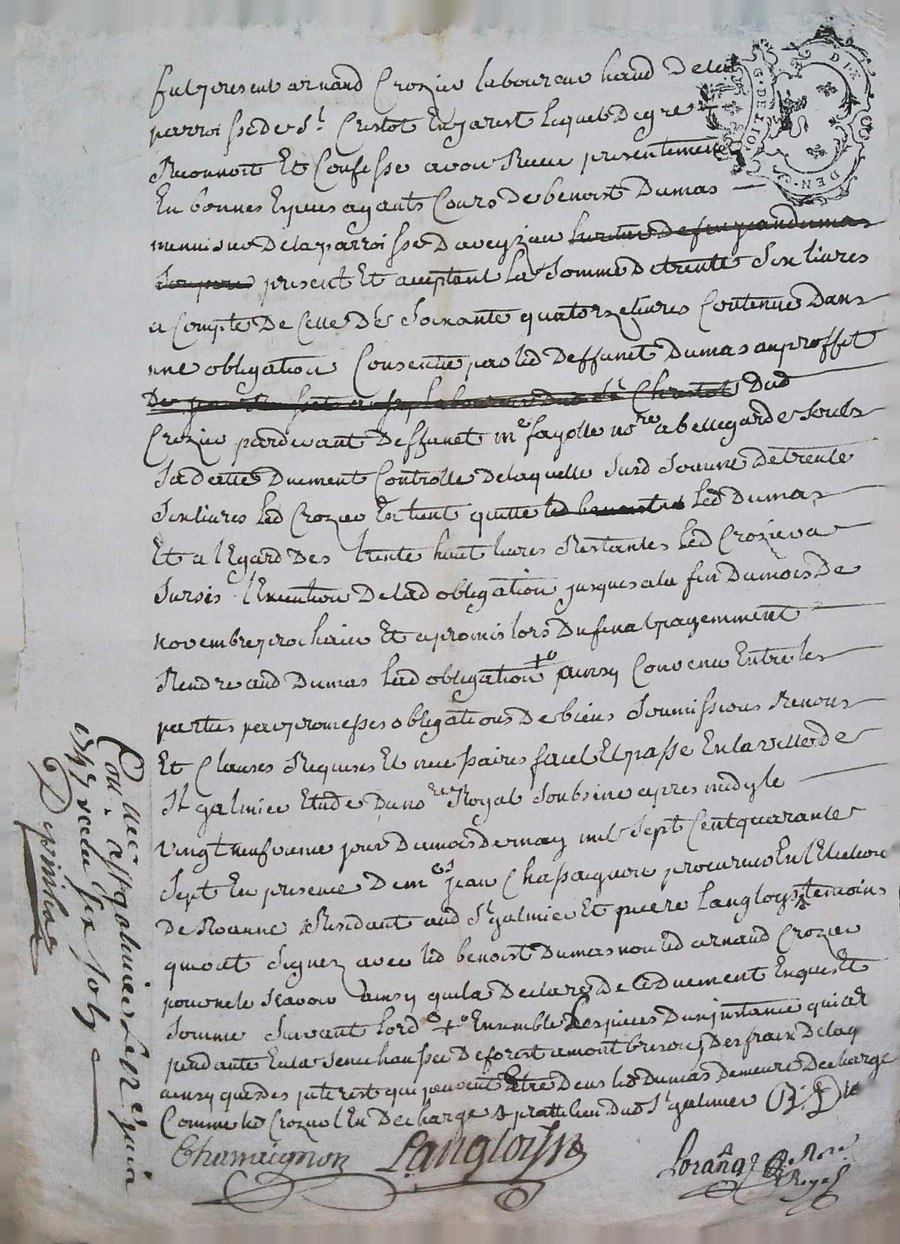 fut present arnaud Crozier laboureur habd de la
parroisse de St Cristot En Jarest Lequel de gre
Reconnoit Et Confesse avoir Receu presentement
En bonnes Especes ayants Cours de benoist Dumas
menusier de la parroisse daveyzieu heritier de feu jean dumas
Son pere present Et aceptant La Somme de trente Six livres
a Compte de Celle de Soixante quatorze livres Contenue Dans
une obligation Consentue par led deffunct Dumas au proffit
St Christot Dud
Crozier pardevant deffunct me fayolle nore a bellegarde Soubs
Sa datte Duement Controlle de laquelle Surd Somme de trente
Six livres Led Crozier En tient quitte led benoist Led Dumas
Et a l'Egard Des trente huit livres Restantes Led Crozier a
Sursis l'Execution De lad obligation jusques a la fin du mois De
novembre prochain Et a promis lors du final payemment
Rendre aud Dumas Lad obligation + ainsy Convenu Entre les
parties par promesses obligations De biens Soumissions Renons
Et Clauses Requises Et necessaires fait Et passe En la ville de
St galmier Etude Du nore Royal Soubsine apres midy le
vingt neufvieme jour du mois de may mil Sept Cent quarante
Sept En presence De mes jean Chassaignon procureur En l'Election
De Roanne Residant aud St galmier Et pierre Langlois temoins
qui ont Signez avec led benoist Dumas non led arnaud Crozier
pour ne le Scavoir ainsy qu'il a Declare de ce duement Enquis Et
Somme Suivant lord + Ensemble Les pieces D'un instance qui est
pendante En la Senechaussee De forest a montbrison Des frais De laq
ainsy que des interest qui peuvent Etre Deus led Dumas Demeure Decharge
Comme led Crozier l'En Decharge aud St galmier
Chassaignon Langlois
Lorang Nore Royal
Con nec a St galmier Le 12e juin
1747 recu six sols